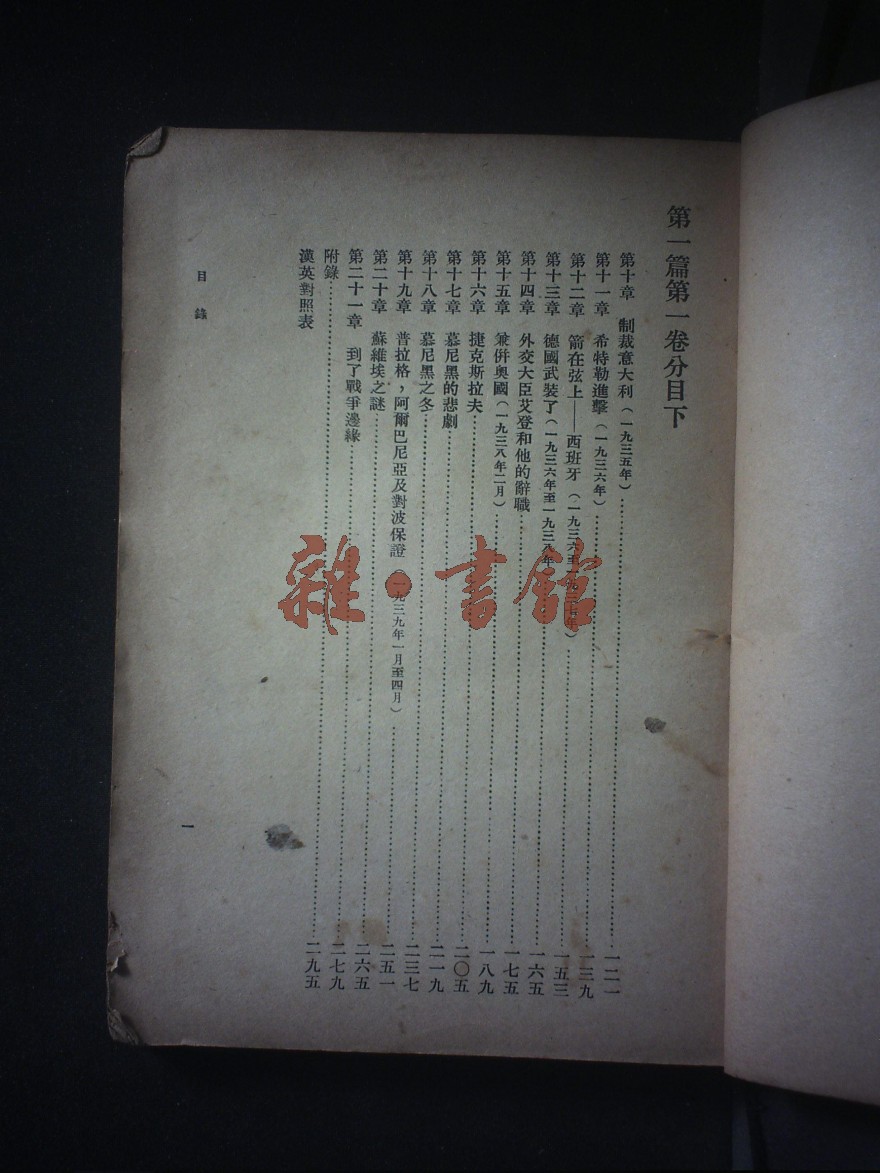 第一篇第一卷分目下
第十章 制裁意大利（一九三五年）……一二一
第十一章 希特勒進擊（一九三六年）……一三九
第十二章 箭在弦上——西班牙（一九三六至一九三七年）……一五三
第十三章 德國武裝了（一九三六年至一九三八年……一六五
第十四章 外交大臣艾登和他的辭職……一七五
第十五章 兼併奧國（一九三八年二月）……一八九
第十六章 捷克斯拉夫……二〇五
第十七章 慕尼黑的悲劇……二一九
第十八章 慕尼黑之冬……二三七
第十九章 普拉格，阿爾巴尼亞及對波保證（一九三九年一月至四月）……二五一
第二十章 蘇維埃之謎……二六五
第二十一章 到了戰爭邊緣……二七九
附錄……二九五
漢英對照表
目錄
一
雜·書館